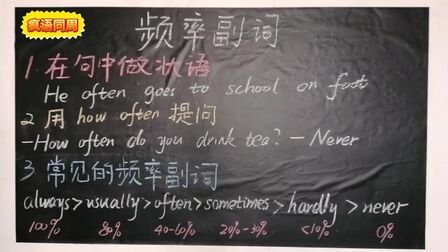 疯语同周
频率副词
1.在句中做状语
He often goes to school on foot
2.用how often提问
-How often do you drink tea? - Never
3.常见的频率副词
always>usually>often>sometimes>hardly>never
100% 80% 40-60% 20%-30% <10% 0%